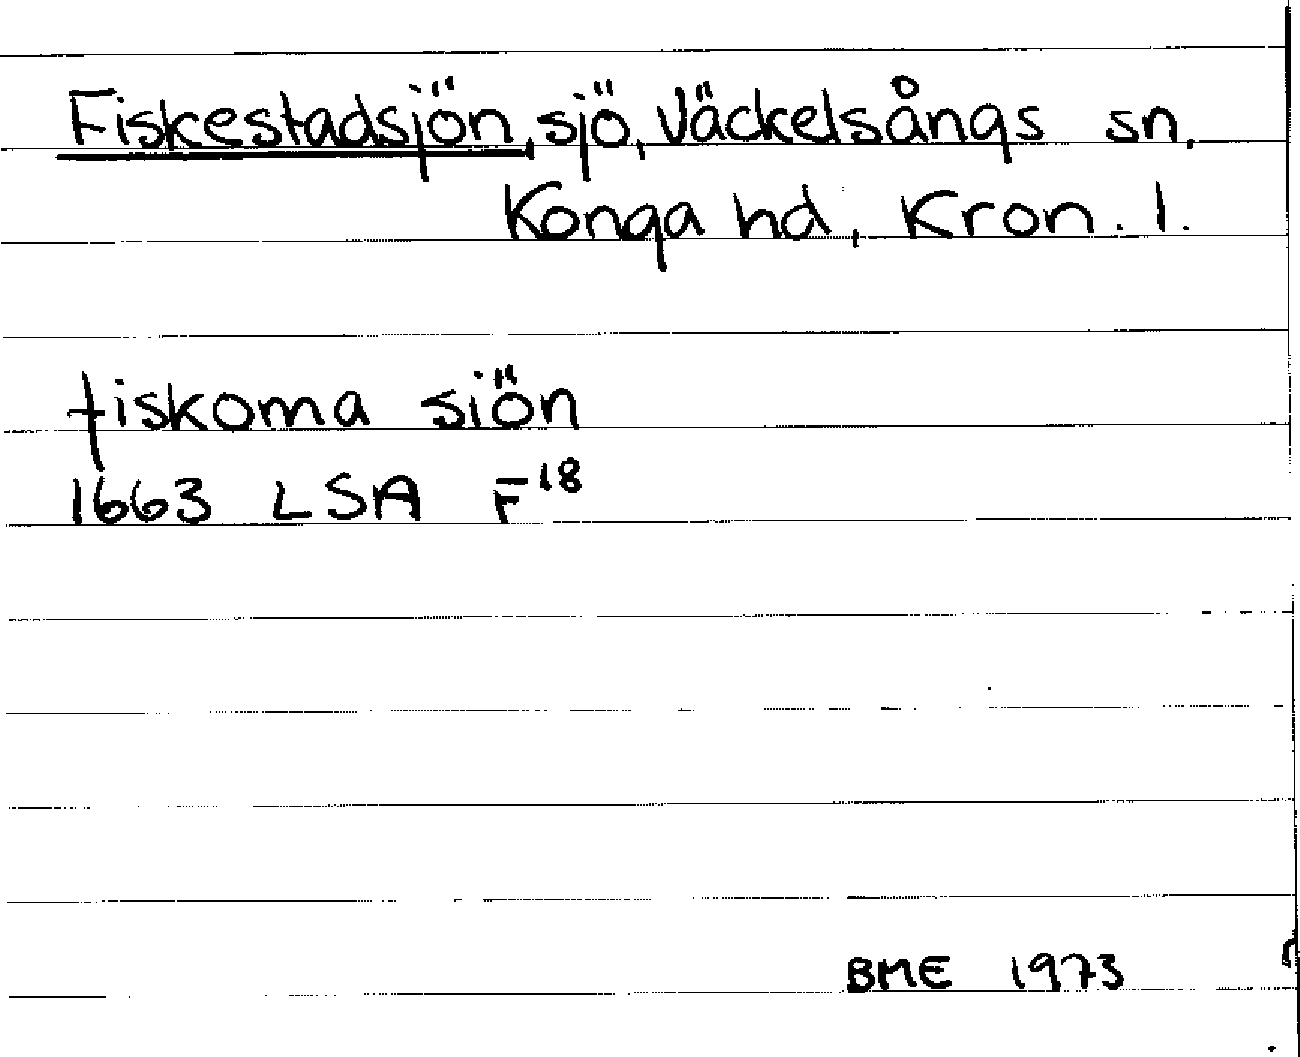 Fiskestadsjön, sjö, Väckelsångs sn,
Konga hd, Kron. l.
fiskoma siön
1663 LSA F18
BME 1973